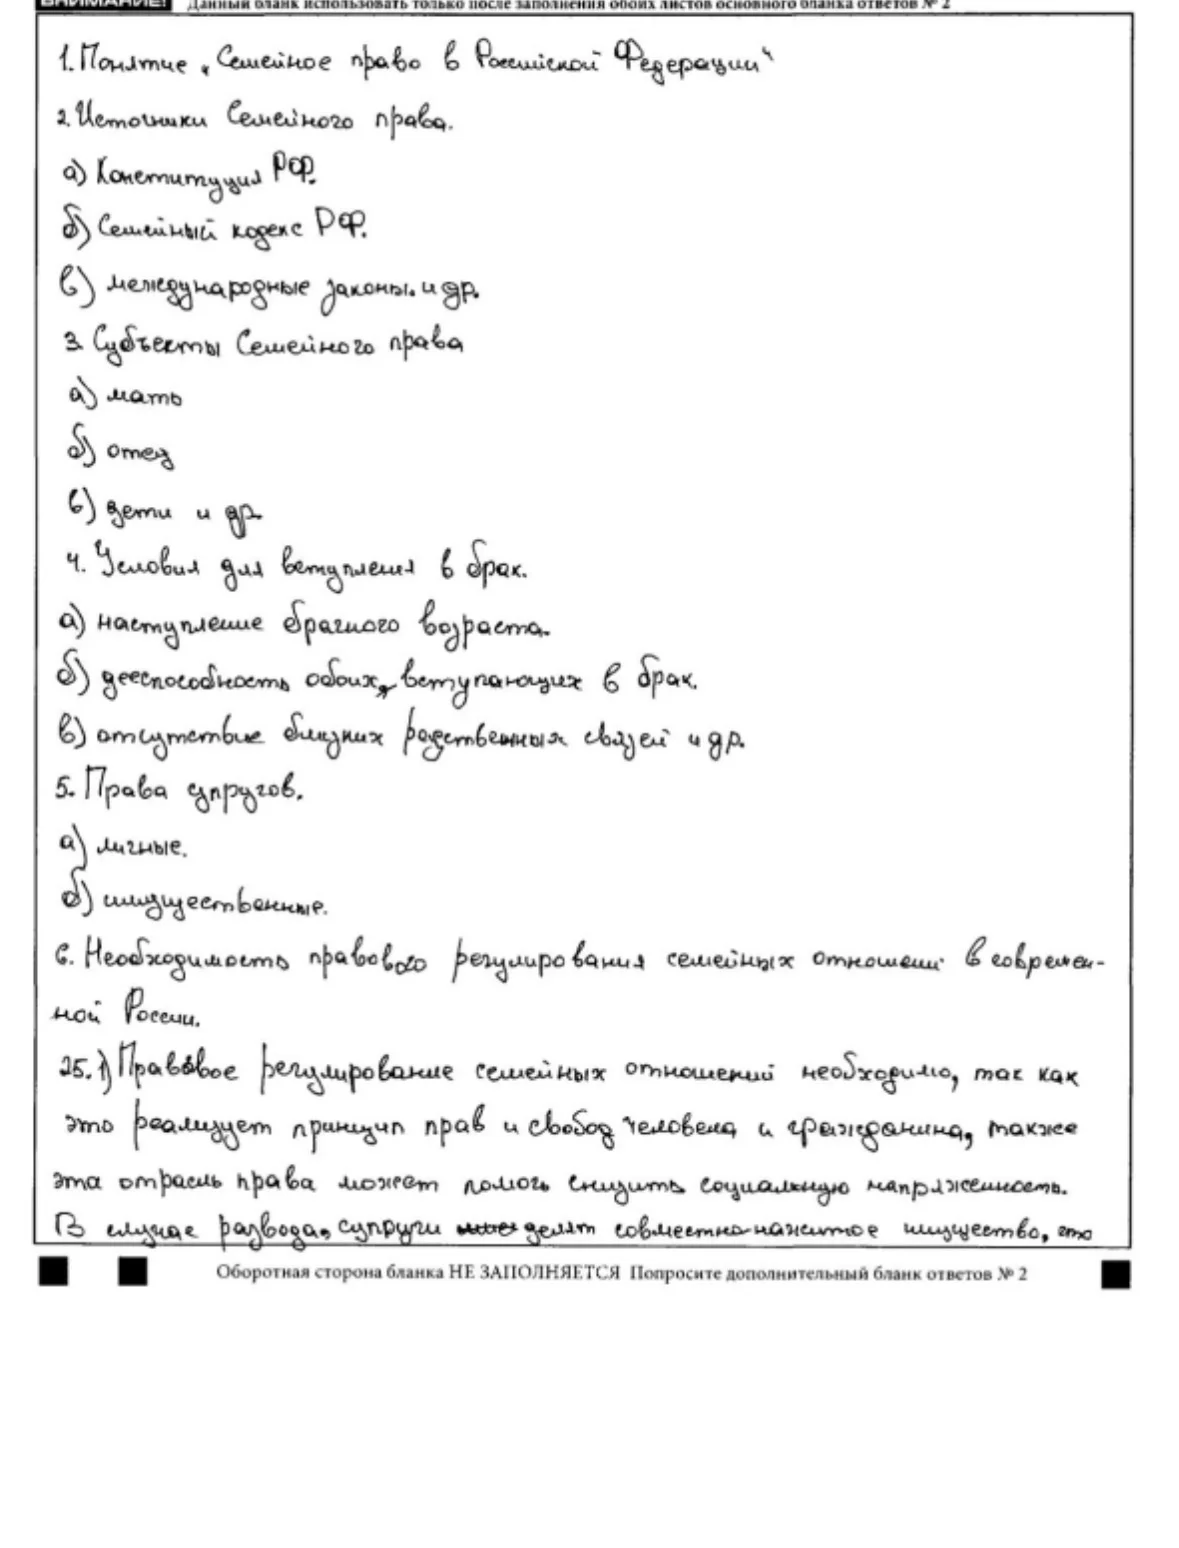 ВНИМАНИЕ! Данный бланк использовать только после заполнения обоих листов основного бланка ответов № 2
1. Понятие „Семейное право в Российской Федерации“
2. Источники Семейного права.
а) Конституция РФ.
б) Семейный кодекс РФ.
в) международные законы. и др.
3. Субъекты Семейного права
а) мать
б) отец
в) дети и др.
4. Условия для вступления в брак.
а) наступление брачного возраста.
б) дееспособность обоих, вступающих в брак.
в) отсутствие близких родственных связей и др.
5. Права супругов.
а) личные.
б) имущественные.
6. Необходимость правового регулирования семейных отношений в современ-
ной России.
25. 1) Правовое регулирование семейных отношений необходимо, так как
это реализует принцип прав и свобод человека и гражданина, также
эта отрасль права может помочь снизить социальную напряженность.
В случае развода, супруги делят совместно-нажитое имущество, это
Оборотная сторона бланка НЕ ЗАПОЛНЯЕТСЯ Попросите дополнительный бланк ответов № 2